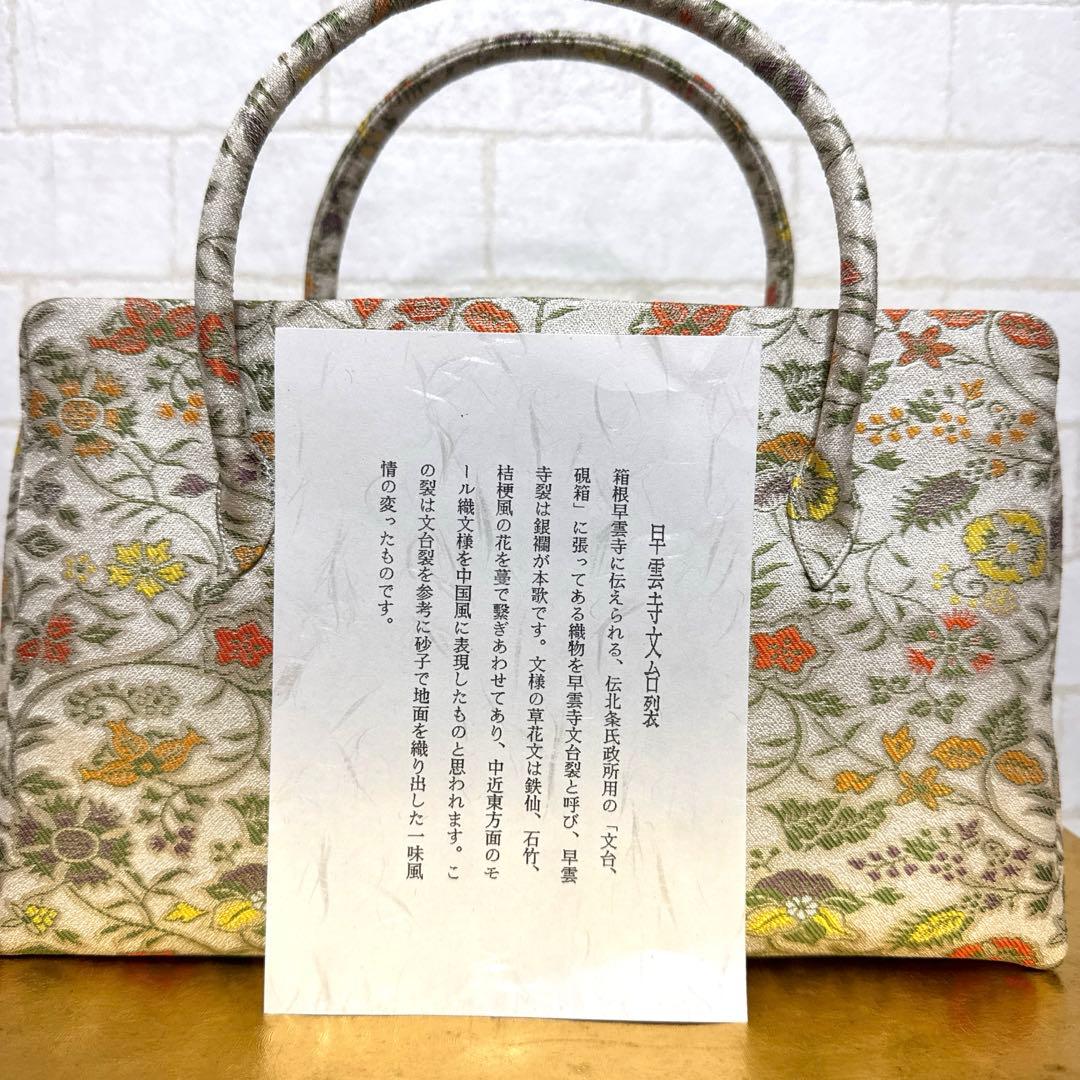 早雲寺文台裂
箱根早雲寺に伝えられる、伝北条氏政所用の「文台、
硯箱」に張ってある織物を早雲寺文台裂と呼び、早雲
寺裂は銀襴が本歌です。文様の草花文は鉄仙、石竹、
桔梗風の花を蔓で繋ぎあわせてあり、中近東方面のモ
ール織文様を中国風に表現したものと思われます。こ
の裂は文台裂を参考に砂子で地面を織り出した一味風
情の変ったものです。